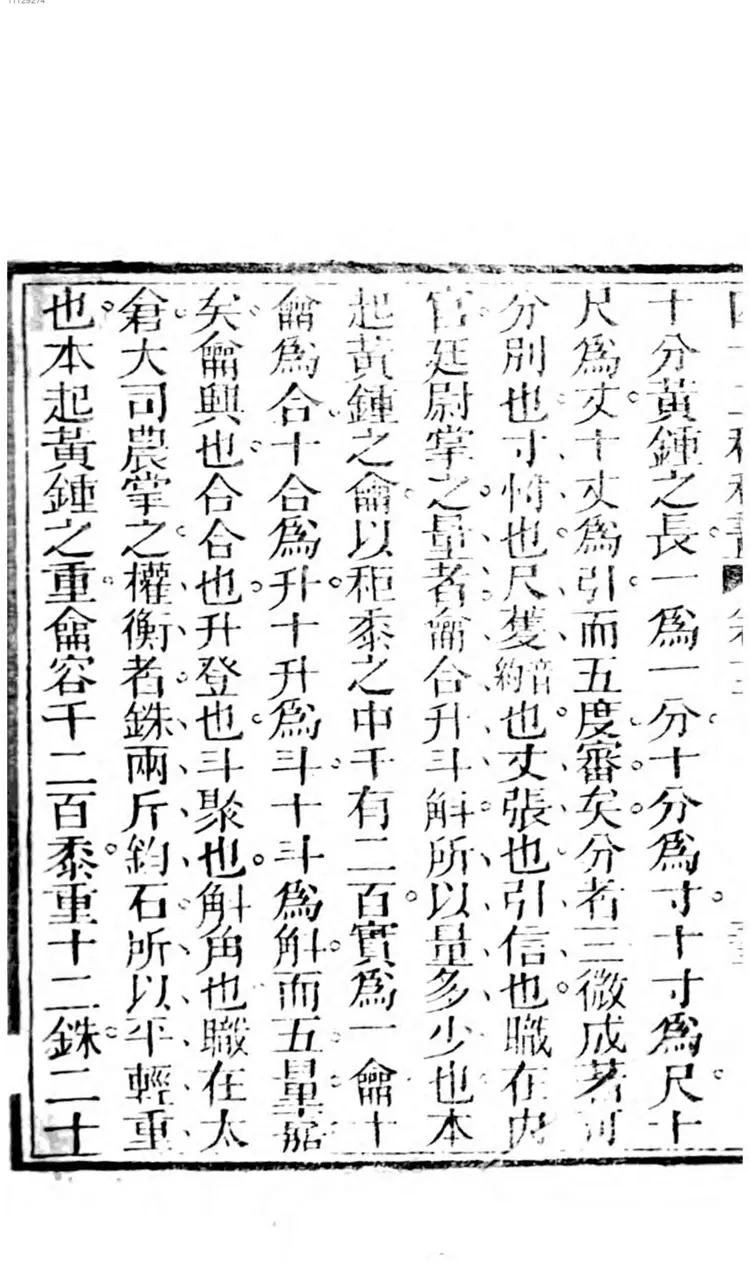 11129274
十分黃鍾之長一爲一分十分爲寸十寸爲尺十
尺爲丈十丈爲引而五度審矣分者三微成著可
分別也寸忖也尺蒦音約也丈張也引信也職在内
官廷尉掌之量者龠合升斗斛所以量多少也本
起黃鍾之龠以秬黍之中千有二百實爲一龠十
龠爲合十合爲升十升爲斗十斗爲斛而五量嘉
矣龠興也合合也升登也斗聚也斛角也職在太
倉大司農掌之權衡者銖兩斤鈞石所以平輕重
也本起黃鍾之重龠容千二百黍重十二銖二十